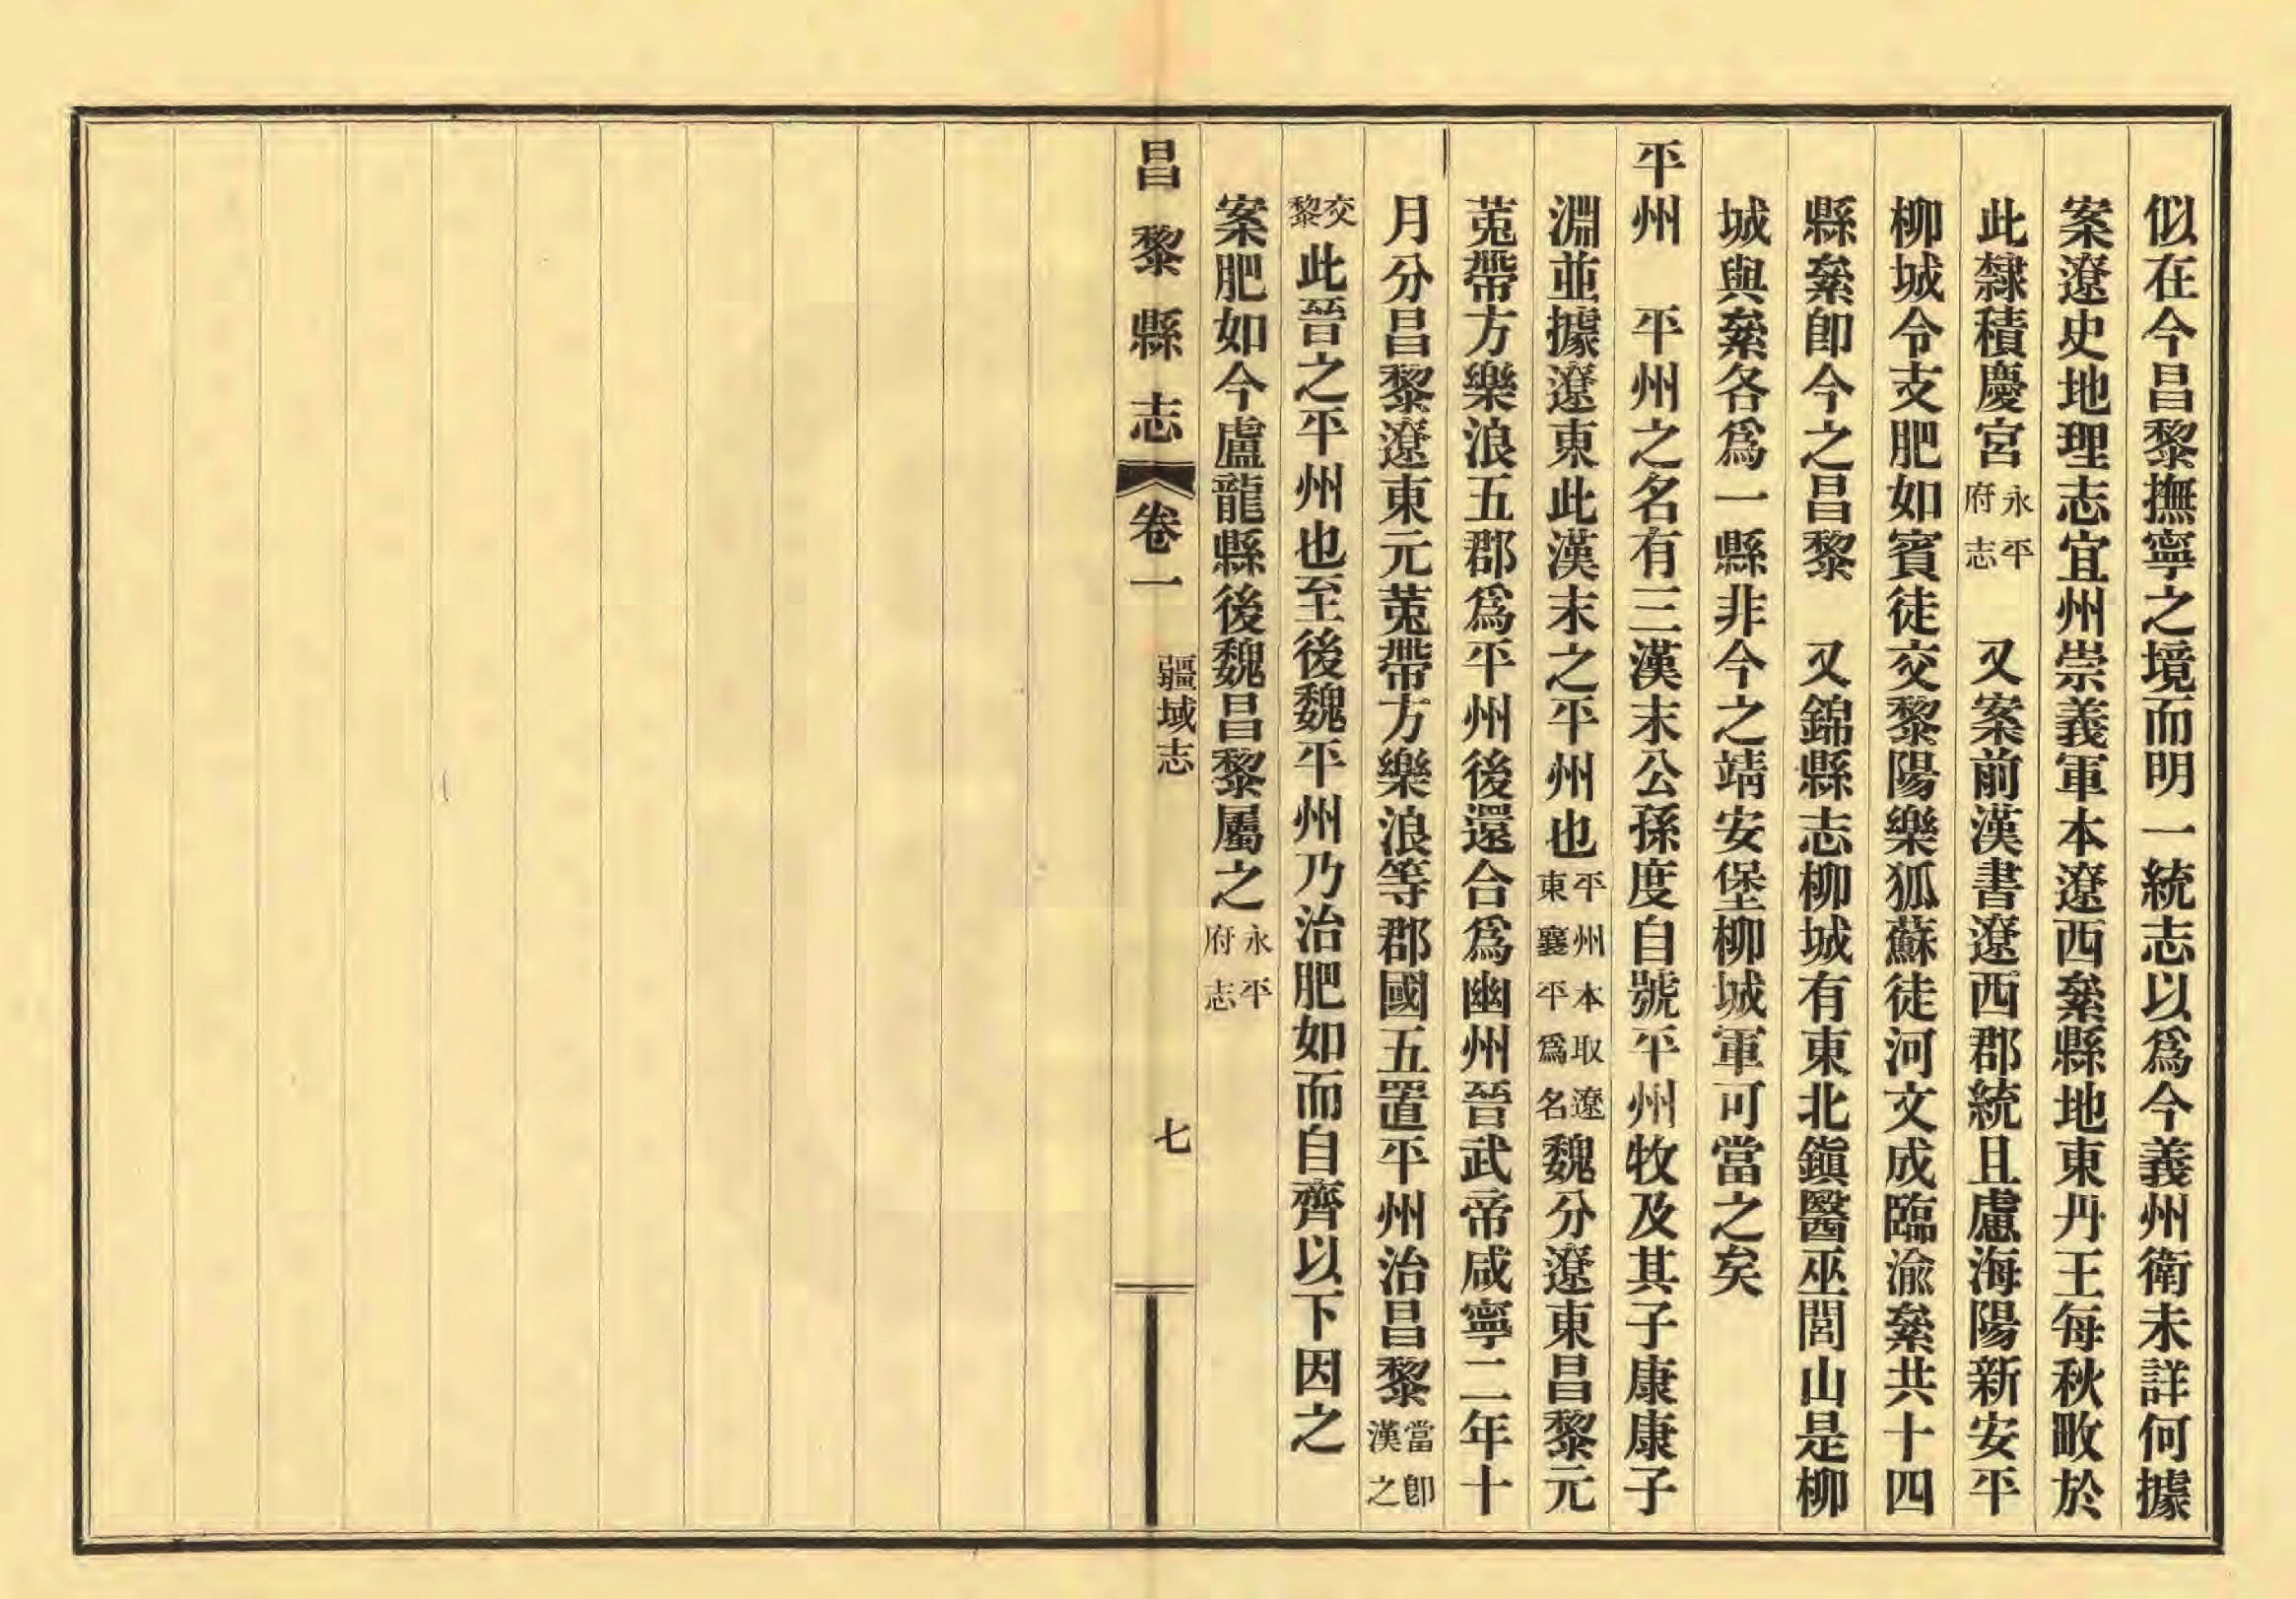 似在今昌黎撫寧之境而明一統志以爲今義州衛未詳何據
案遼史地理志宜州崇義軍本遼西絫縣地東丹王每秋畋於
此隸積慶宮永平府志　又案前漢書遼西郡統且慮海陽新安平
柳城令支肥如賓徒交黎陽樂狐蘇徒河文成臨渝絫共十四
縣絫卽今之昌黎　又錦縣志柳城有東北鎭醫巫閭山是柳
城與絫各爲一縣非今之靖安堡柳城軍可當之矣
平州　平州之名有三漢末公孫度自號平州牧及其子康康子
淵並據遼東此漢末之平州也平州本取遼東襄平爲名魏分遼東昌黎元
菟帶方樂浪五郡爲平州後還合爲幽州晉武帝咸寧二年十
月分昌黎遼東元菟帶方樂浪等郡國五置平州治昌黎當卽漢之
交黎此晉之平州也至後魏平州乃治肥如而自齊以下因之
案肥如今盧龍縣後魏昌黎屬之永平府志
昌黎縣志　卷一　疆域志　七